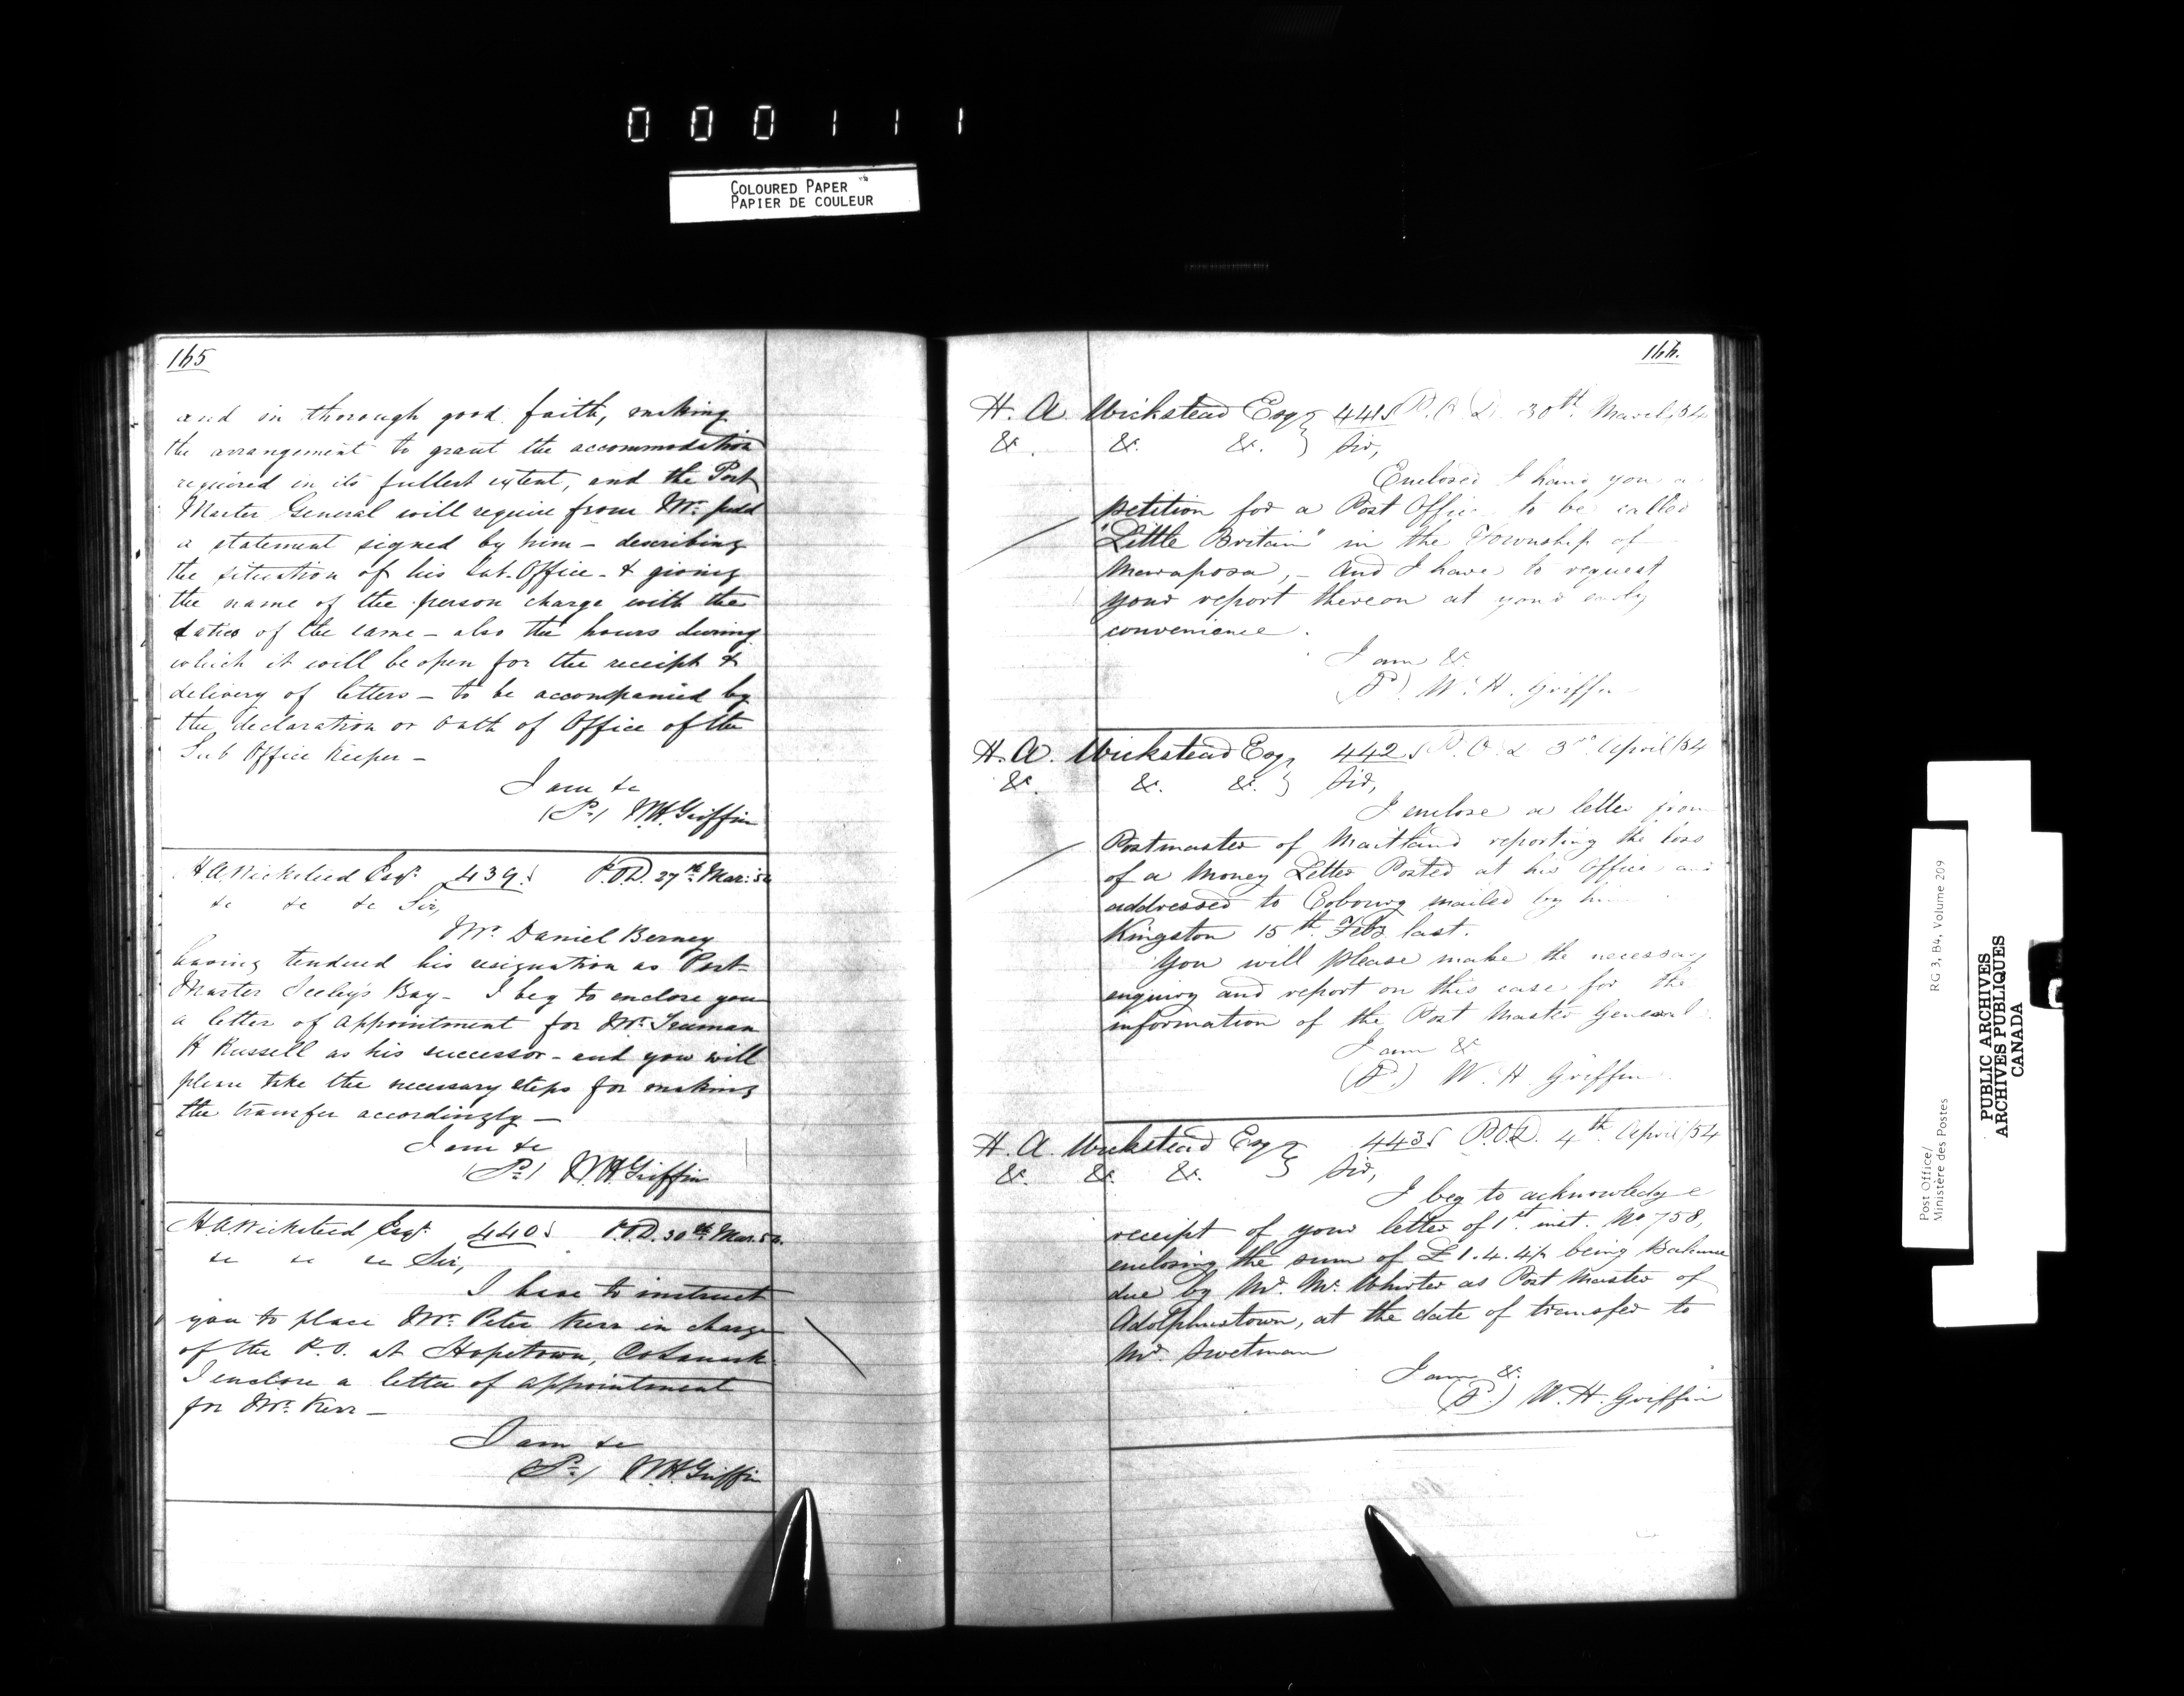 000111
COLOURED PAPER
PAPIER DE COULEUR
165
and in thorough good faith, making
the arrangement to grant the accommodation
required in its fullest extent, and the Post
Master General will require from Mr. Judd
a statement signed by him - describing
the situation of his Sub-Office - & giving
the name of the person charge with the
duties of the same - also the hours during
which it will be open for the receipt &
delivery of letters - to be accompanied by
the declaration or oath of Office of the
Sub Office Keeper -
I am &c
W.H. Griffin
H.A. Wicksteed Esqr. 439 P.O.D. 27th Mar: 54
&c &c &c Sir,
Mr. Daniel Berney
having tendered his resignation as Post-
Master Seeley's Bay - I beg to enclose you
a letter of appointment for Mr. Truman
H Russell as his successor - and you will
please take the necessary steps for making
the transfer accordingly -
I am &c
W.H. Griffin
H.A. Wicksteed Esqr. 440 P.O.D. 30th Mar. 54.
&c &c &c Sir,
I have to instruct
you to place Mr. Peter Kerr in charge
of the P.O. at Hopetown, Co Lanark.
I enclose a letter of appointment
for Mr. Kerr -
I am &c
W.H. Griffin
166.
H. A. Wickstead Esq 441 P.O.D. 30th March/54
&c. &c. &c. } Sir,
Enclosed I hand you a
petition for a Post Office to be called
"Little Britain" in the Township of
Maraposa, - And I have to request
your report thereon at your early
convenience.
I am &c.
W. H. Griffin
H. A. Wickstead Esq 442 P.O.D 3rd April/54
&c. &c. &c. } Sir,
I enclose a letter from
Postmaster of Maitland reporting the loss
of a Money Letter Posted at his Office and
addressed to Cobourg mailed by him
Kingston 15th Feby last.
You will please make the necessary
enquiry and report on this case for the
information of the Post Master General.
I am &c
W. H. Griffin
H. A. Wickstead Esq 443 P.O.D. 4th April/54
&c. &c. &c. } Sir,
I beg to acknowledge
receipt of your letter of 1st inst. No 758,
enclosing the sum of £1.4.4½ being Balance
due by Mr. Mc. Whirter as Post Master of
Adolphustown, at the date of transfer to
Mr. Swetman
I am &c.
W. H. Griffin
Post Office/
Ministère des Postes
RG 3, B4, Volume 209
PUBLIC ARCHIVES
ARCHIVES PUBLIQUES
CANADA